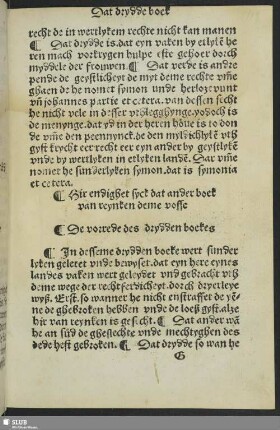 Dat drydde boek
recht de in wertlykem rechte nicht kan manen
¶ Dat drydde is. dat eyn vaken by etlykē he
ren mach vortrygen hulpe efte gehoer dorch
myddele der frouwen. ¶ Dat verde is andre
pende de geystlicheyt de myt deme rechte vm̄e
ghaen de he nomet symon vnde herlozevunt
vn̄ johannes partie et cetera. van dessen secht
he nicht vele in desser vthlegghynge. yodoch is
de menynge. dat yd in der heren houe is to don
de vm̄e den pennynck. de den myldichlykē vth
gyft krycht eer recht eer eyn ander by geystlykē
vnde by wertlyken in etlyken landē. Dar vm̄e
nomet he sunderlyken symon. dat is symonia
et cetera.
¶ Hir endighet syck dat ander boek
van reynken deme vosse
¶ De vorrede des drydden boekes
¶ In desseme drydden boeke wert sunder
lyken geleret vnde bewyset. dat eyn here eynes
landes vaken wert geleydet vnd gebracht vth
deme wege der rechtferdicheyt. dorch dryerleye
wyß. Erst. so wanner he nicht enstraffet de yē
ne de ghebroken hebben vnde de loeß gyft. alze
hir van reynken is gesecht. ¶ Dat ander wā
he an süd de gheslechte vnde mechtyghen des
de de heft gebroken. ¶ Dat drydde so wan he
G
SLUB